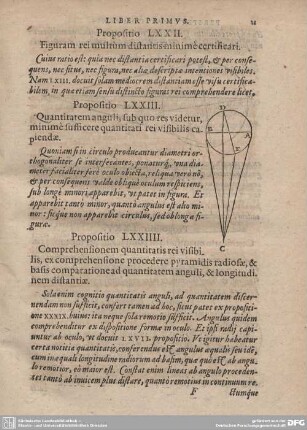 LIBER PRIMVS. 21
Propositio LXXII.
Figuram rei multum distantis minimè certificari.
Cuius ratio est: quia nec distantia certificari potest, & per conse-
quens, nec situs, nec figura, nec aliæ descriptæ intentiones visibiles.
Nam LXIII. docuit solam mediocrem distantiam esse visu certifica-
bilem, in qua etiam sensu distincto figuras rei comprehendere licet.
Propositio LXXIII.
Quantitatem anguli, sub quo res videtur,
minimè sufficere quantitati rei visibilis ca-
piendæ.
Quoniam si in circulo producantur diametri or-
thogonaliter se intersecantes, ponaturq́; una dia-
meter facialiter ferè oculo obiecta, reliqua verò nō,
& per consequens valde obliquè oculum respiciens,
sub longè minori apparebit, ut patet in figura. Et
apparebit tantò minor, quantò angulus est alio mi-
nor: sicque non apparebit circulus, sed oblonga fi-
gura.
D
B
A
E
C
Propositio LXXIIII.
Comprehensionem quantitatis rei visibi-
lis, ex comprehensione procedere pyramidis radiosæ, &
basis comparatione ad quantitatem anguli, & longitudi
nem distantiæ.
Sola enim cognitio quantitatis anguli, ad quantitatem discer-
nendam non sufficit, confert tamen ad hoc, sicut patet ex proposici-
one XXXIX. huius: ita neque sola remotio sufficit. Angulus quidem
comprehenditur ex dispositione formæ in oculo. Et ipsi radij capi-
untur ab oculo, ut docuit LXVII. propositio. Vigitur habeatur
certa notitia quantitatis, conferendus est angulus aequalis seu idē,
cum inæquali longitudine radiorum ad basim, quæ quò est ab angu
lo remotior, eò maior est. Constat enim lineas ab angulo proceden-
tes tantò ab inuicem plus distare, quantò remotius in continuum re
F ctumque